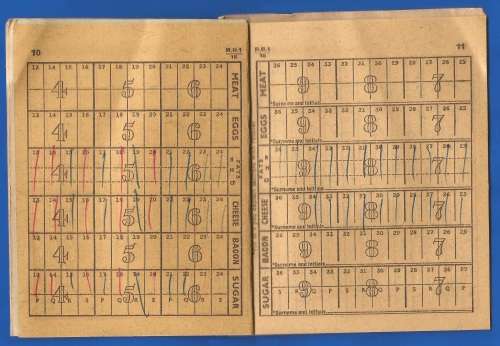 10
13 14 15 16 17 18 19 20 21 22 23 24
4 5 6
MEAT
13 14 15 16 17 18 19 20 21 22 23 24
4 5 6
EGGS
13 14 15 16 17 18 19 20 21 22 23 24
4 5 6
FATS
13 14 15 16 17 18 19 20 21 22 23 24
4 5 6
CHEESE
13 14 15 16 17 18 19 20 21 22 23 24
4 5 6
BACON
13 14 15 16 17 18 19 20 21 22 23 24
4 5 6
SUGAR
11
MEAT
36 35 34 33 32 31 30 29 28 27 26 25
9 8 7
*Surname and Initials
EGGS
36 35 34 33 32 31 30 29 28 27 26 25
9 8 7
*Surname and Initials
FATS
36 35 34 33 32 31 30 29 28 27 26 25
9 8 7
*Surname and Initials
CHEESE
36 35 34 33 32 31 30 29 28 27 26 25
9 8 7
*Surname and Initials
BACON
36 35 34 33 32 31 30 29 28 27 26 25
9 8 7
*Surname and Initials
SUGAR
36 35 34 33 32 31 30 29 28 27 26 25
9 8 7
*Surname and Initials